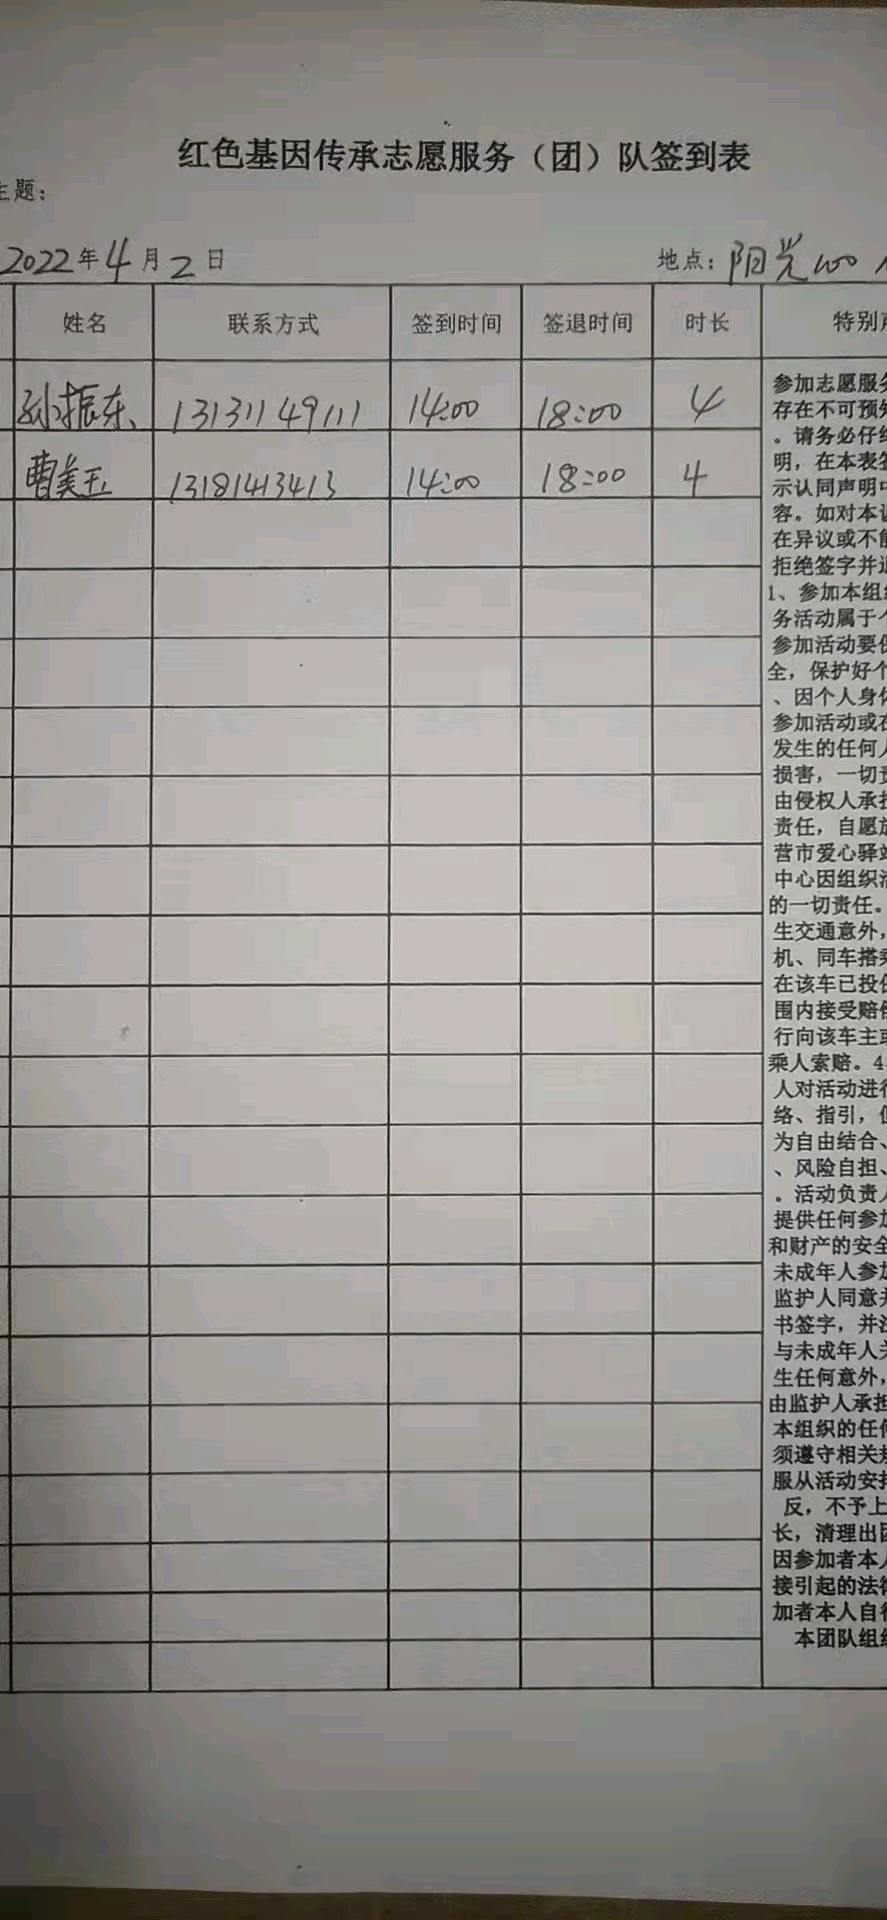 红色基因传承志愿服务（团）队签到表
主题：
2022年4月2日 地点：阳光100
姓名 联系方式 签到时间 签退时间 时长 特别声
孙振东 13131149111 14:00 18:00 4
曹美玉 13181413413 14:00 18:00 4
参加志愿服务
存在不可预知
。请务必仔细
明，在本表签
示认同声明中
容。如对本
在异议或不能
拒绝签字并退
1、参加本组织
务活动属于个
参加活动要保
全，保护好个
、因个人身体
参加活动或在
发生的任何人
损害，一切责
由侵权人承担
责任，自愿放
营市爱心驿站
中心因组织活
的一切责任。
生交通意外，
机、同车搭乘
在该车已投保
围内接受赔偿
行向该车主或
乘人索赔。4
人对活动进行
络、指引，但
为自由结合、
、风险自担、
。活动负责人
提供任何参加
和财产的安全
未成年人参加
监护人同意并
书签字，并注
与未成年人关
生任何意外，
由监护人承担
本组织的任何
须遵守相关规
服从活动安排
反，不予上
长，清理出团
因参加者本人
接引起的法律
加者本人自行
本团队组织